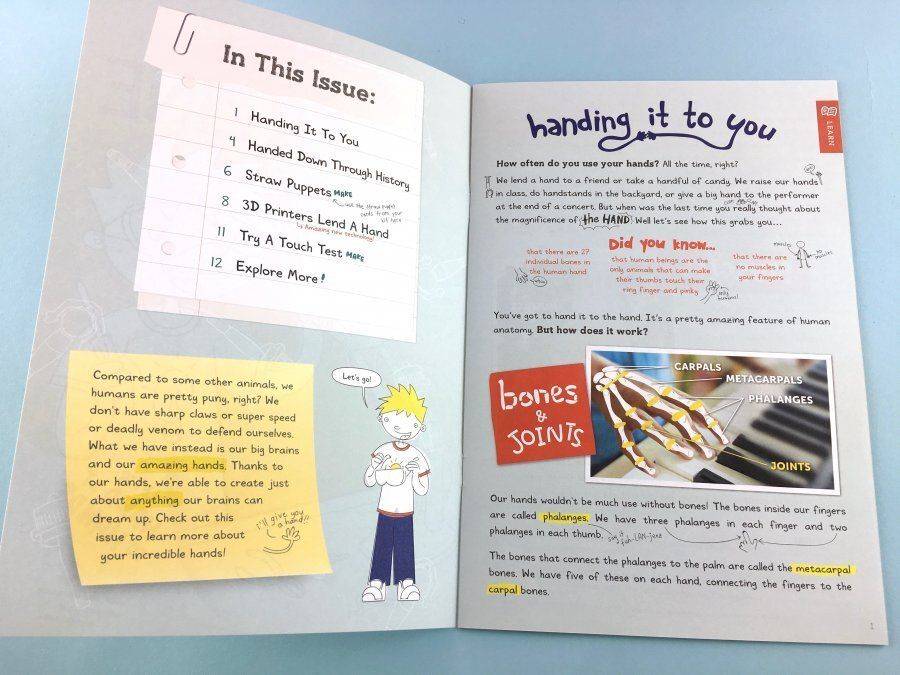 In This Issue:
1 Handing It To You
4 Handed Down Through History
6 Straw Puppets MAKE
use the straw puppet
cards from your
kit here
8 3D Printers Lend A Hand
Amazing new technology!
11 Try A Touch Test MAKE
12 Explore More!
Compared to some other animals, we
humans are pretty puny, right? We
don't have sharp claws or super speed
or deadly venom to defend ourselves.
What we have instead is our big brains
and our amazing hands. Thanks to
our hands, we're able to create just
about anything our brains can
dream up. Check out this
issue to learn more about
your incredible hands!
I'll give you
a hand!!
Let's go!
LEARN
handing it to you
How often do you use your hands? All the time, right?
We lend a hand to a friend or take a handful of candy. We raise our hands
in class, do handstands in the backyard, or give a big hand to the performer
at the end of a concert. But when was the last time you really thought about
the magnificence of the HAND? Well let's see how this grabs you...
Did you know...
that there are 27
individual bones in
the human hand
that human beings are the
only animals that can make
their thumbs touch their
ring finger and pinky
only
humans!
muscles
no
muscles
that there are
no muscles in
your fingers
You've got to hand it to the hand. It's a pretty amazing feature of human
anatomy. But how does it work?
bones
&
JOINTS
CARPALS
METACARPALS
PHALANGES
JOINTS
Our hands wouldn't be much use without bones! The bones inside our fingers
are called phalanges. We have three phalanges in each finger and two
phalanges in each thumb.
say it
fuh-LAN-jeez
The bones that connect the phalanges to the palm are called the metacarpal
bones. We have five of these on each hand, connecting the fingers to the
carpal bones.
1